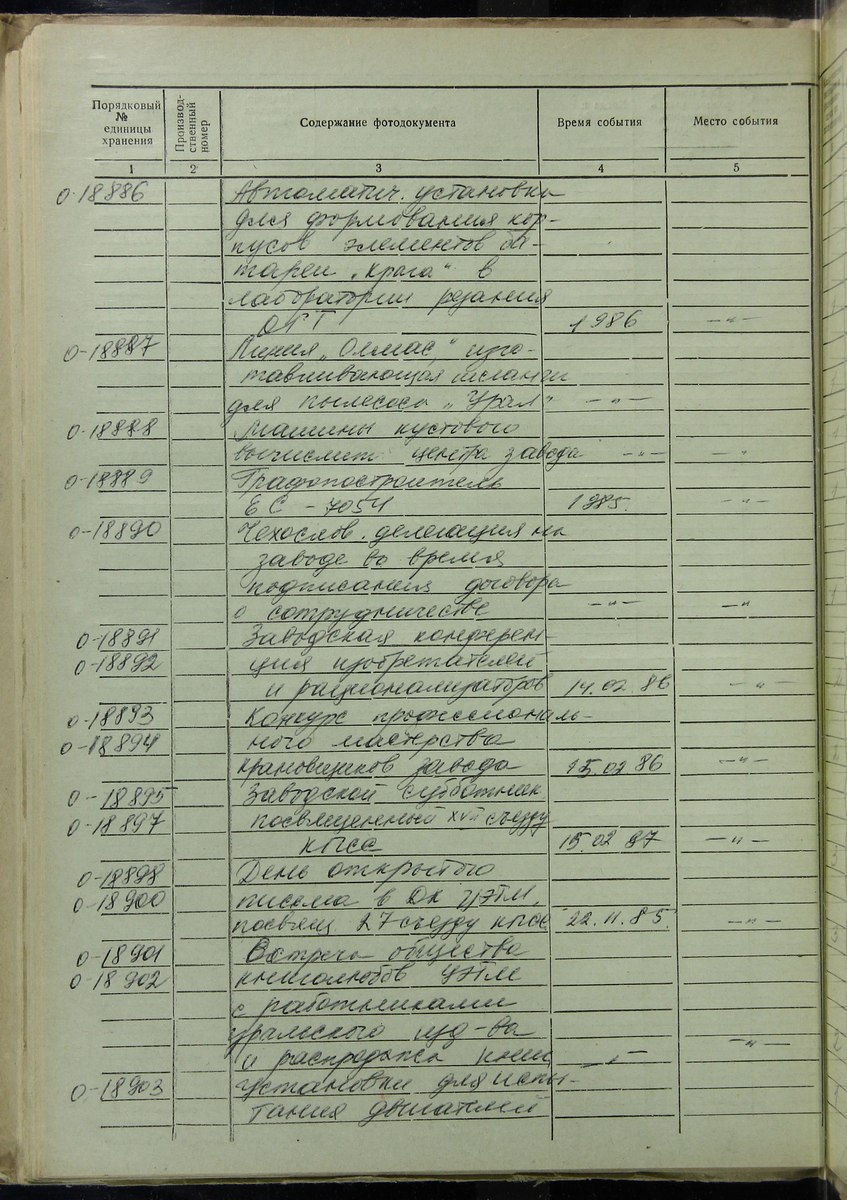 Порядковый № единицы хранения
Производственный номер
Содержание фотодокумента
Время события
Место события
1 2 3 4 5
0-18886 Автоматич. установка
для формования кор-
пусов элементов ба-
тареи „Крона" в
лаборатории резания
1986 —„—
0-18887 Линия „Олмас", изго-
тавливающая шланги
для пылесоса „Урал" —„—
0-18888 Машины кустового
вычислит. центра завода —„— —„—
0-18889 Графопостроитель
ЕС - 7054 1985. —„—
0-18890 Чехослов. делегация на
заводе во время
подписания договора
о сотрудничестве —„— —„—
0-18891 Заводская конферен-
0-18892 ция изобретателей
и рационализаторов 14.02.86 —„—
0-18893 Конкурс профессиональ-
0-18894 ного мастерства
крановщиков завода 15.02 86 —„—
0-18895 Заводской субботник
0-18897 посвященный XVII съезду
КПСС 15.02 87 —„—
0-18898 День открытого
0-18900 письма в ДК УЭТМ,
посвящ. 27 съезду КПСС 22.11.85. —„—
0-18901 Встреча общества
0-18902 книголюбов УЭТМ
с работниками
Уральского изд-ва
и распродажа книг —„— —„—
0-18903 Установки для испы-
тания двигателей